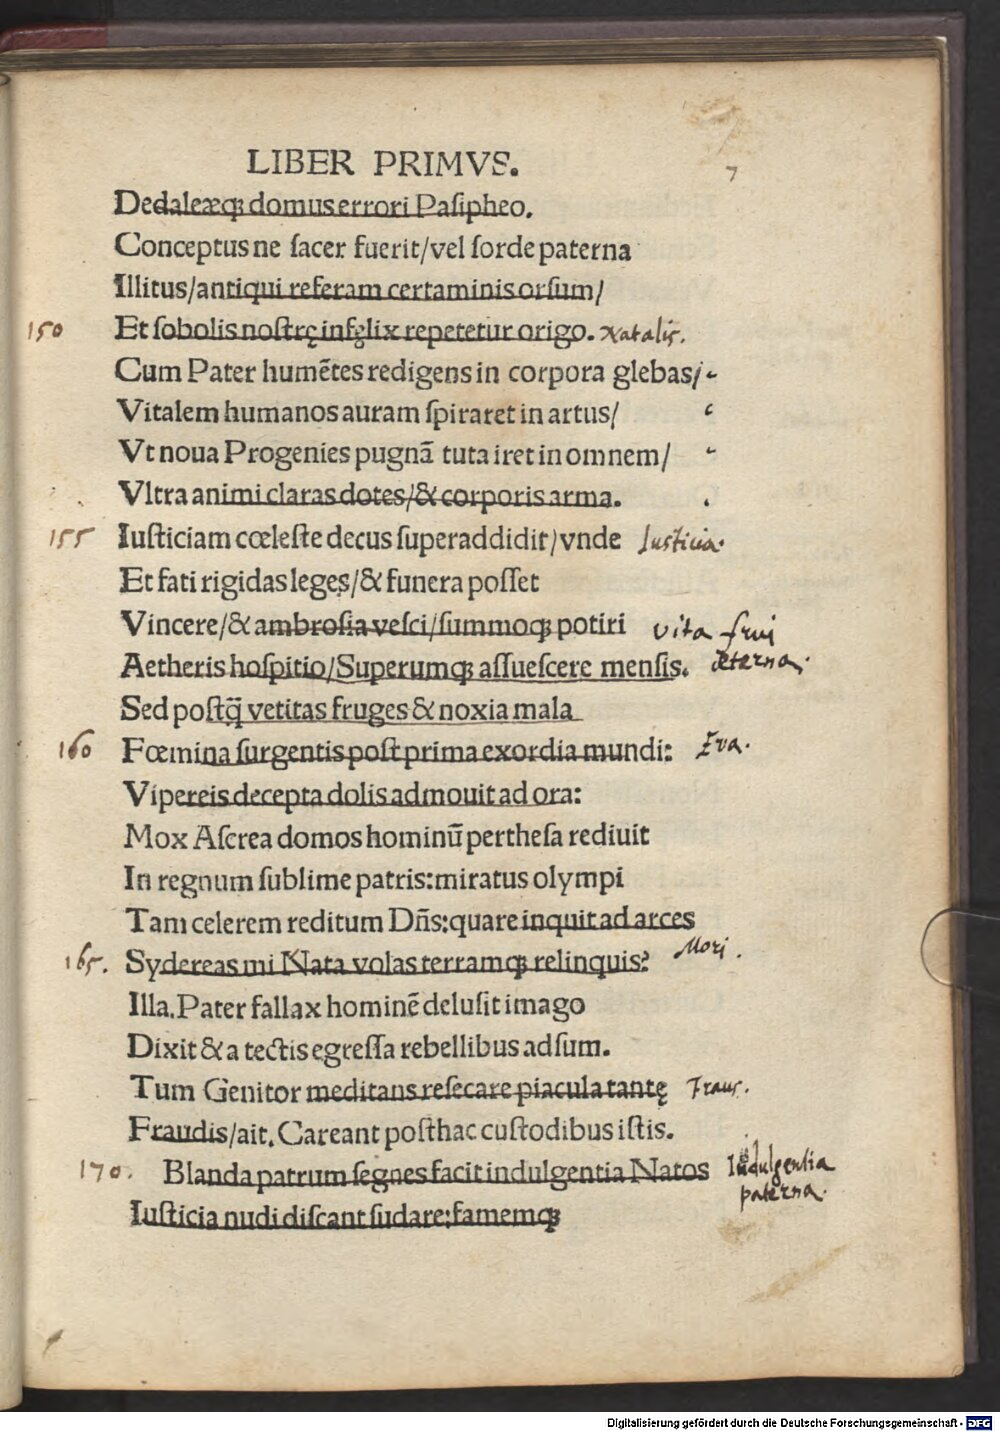 LIBER PRIMVS.
7
Dedaleæq; domus errori Pasipheo.
Conceptus ne sacer fuerit/vel sorde paterna
Illitus/antiqui referam certaminis orsum/
150 Et sobolis nostrę infęlix repetetur origo. Natalis.
Cum Pater humētes redigens in corpora glebas/
Vitalem humanos auram spiraret in artus/
Vt noua Progenies pugnā tuta iret in omnem/
Vltra animi claras dotes/& corporis arma.
155 Iusticiam cœleste decus superaddidit/vnde Iusticia.
Et fati rigidas leges/& funera posset
Vincere/& ambrosia vesci/summoq; potiri vita frui
Aetheris hospitio/Superumq; assuescere mensis. æterna.
Sed postq̄ vetitas fruges & noxia mala
160 Fœmina surgentis post prima exordia mundi: Eva.
Vipereis decepta dolis admouit ad ora:
Mox Ascrea domos hominū perthesa rediuit
In regnum sublime patris:miratus olympi
Tam celerem reditum Dn̄s:quare inquit ad arces
165. Sydereas mi Nata volas terramq; relinquis? Mori.
Illa.Pater fallax hominē delusit imago
Dixit & a tectis egressa rebellibus adsum.
Tum Genitor meditans resecare piacula tantę Fraus.
Fraudis/ait.Careant posthac custodibus istis.
170. Blanda patrum segnes facit indulgentia Natos Indulgentia
paterna.
Iusticia nudi discant sudare:famemq;
Digitalisierung gefördert durch die Deutsche Forschungsgemeinschaft - DFG